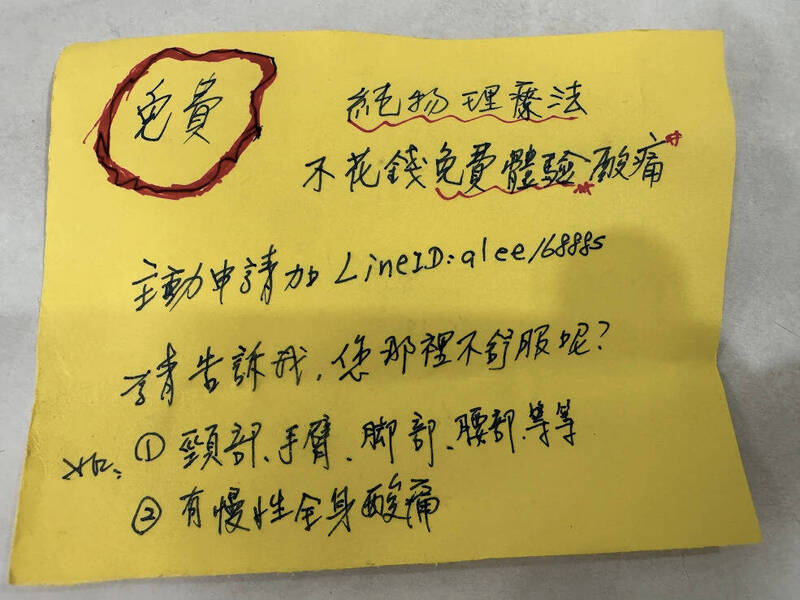 免費
純物理療法
不花錢免費體驗酸痛
主動申請加 LineID:alee168885
請告訴我,您那裡不舒服呢?
如:①頸部、手臂、脚部、腰部、等等
②有慢性全身酸痛